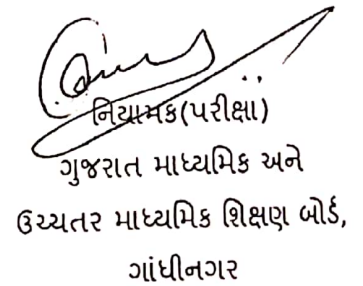 નિયામક(પરીક્ષા)
ગુજરાત માધ્યમિક અને
ઉચ્ચતર માધ્યમિક શિક્ષણ બોર્ડ,
ગાંધીનગર